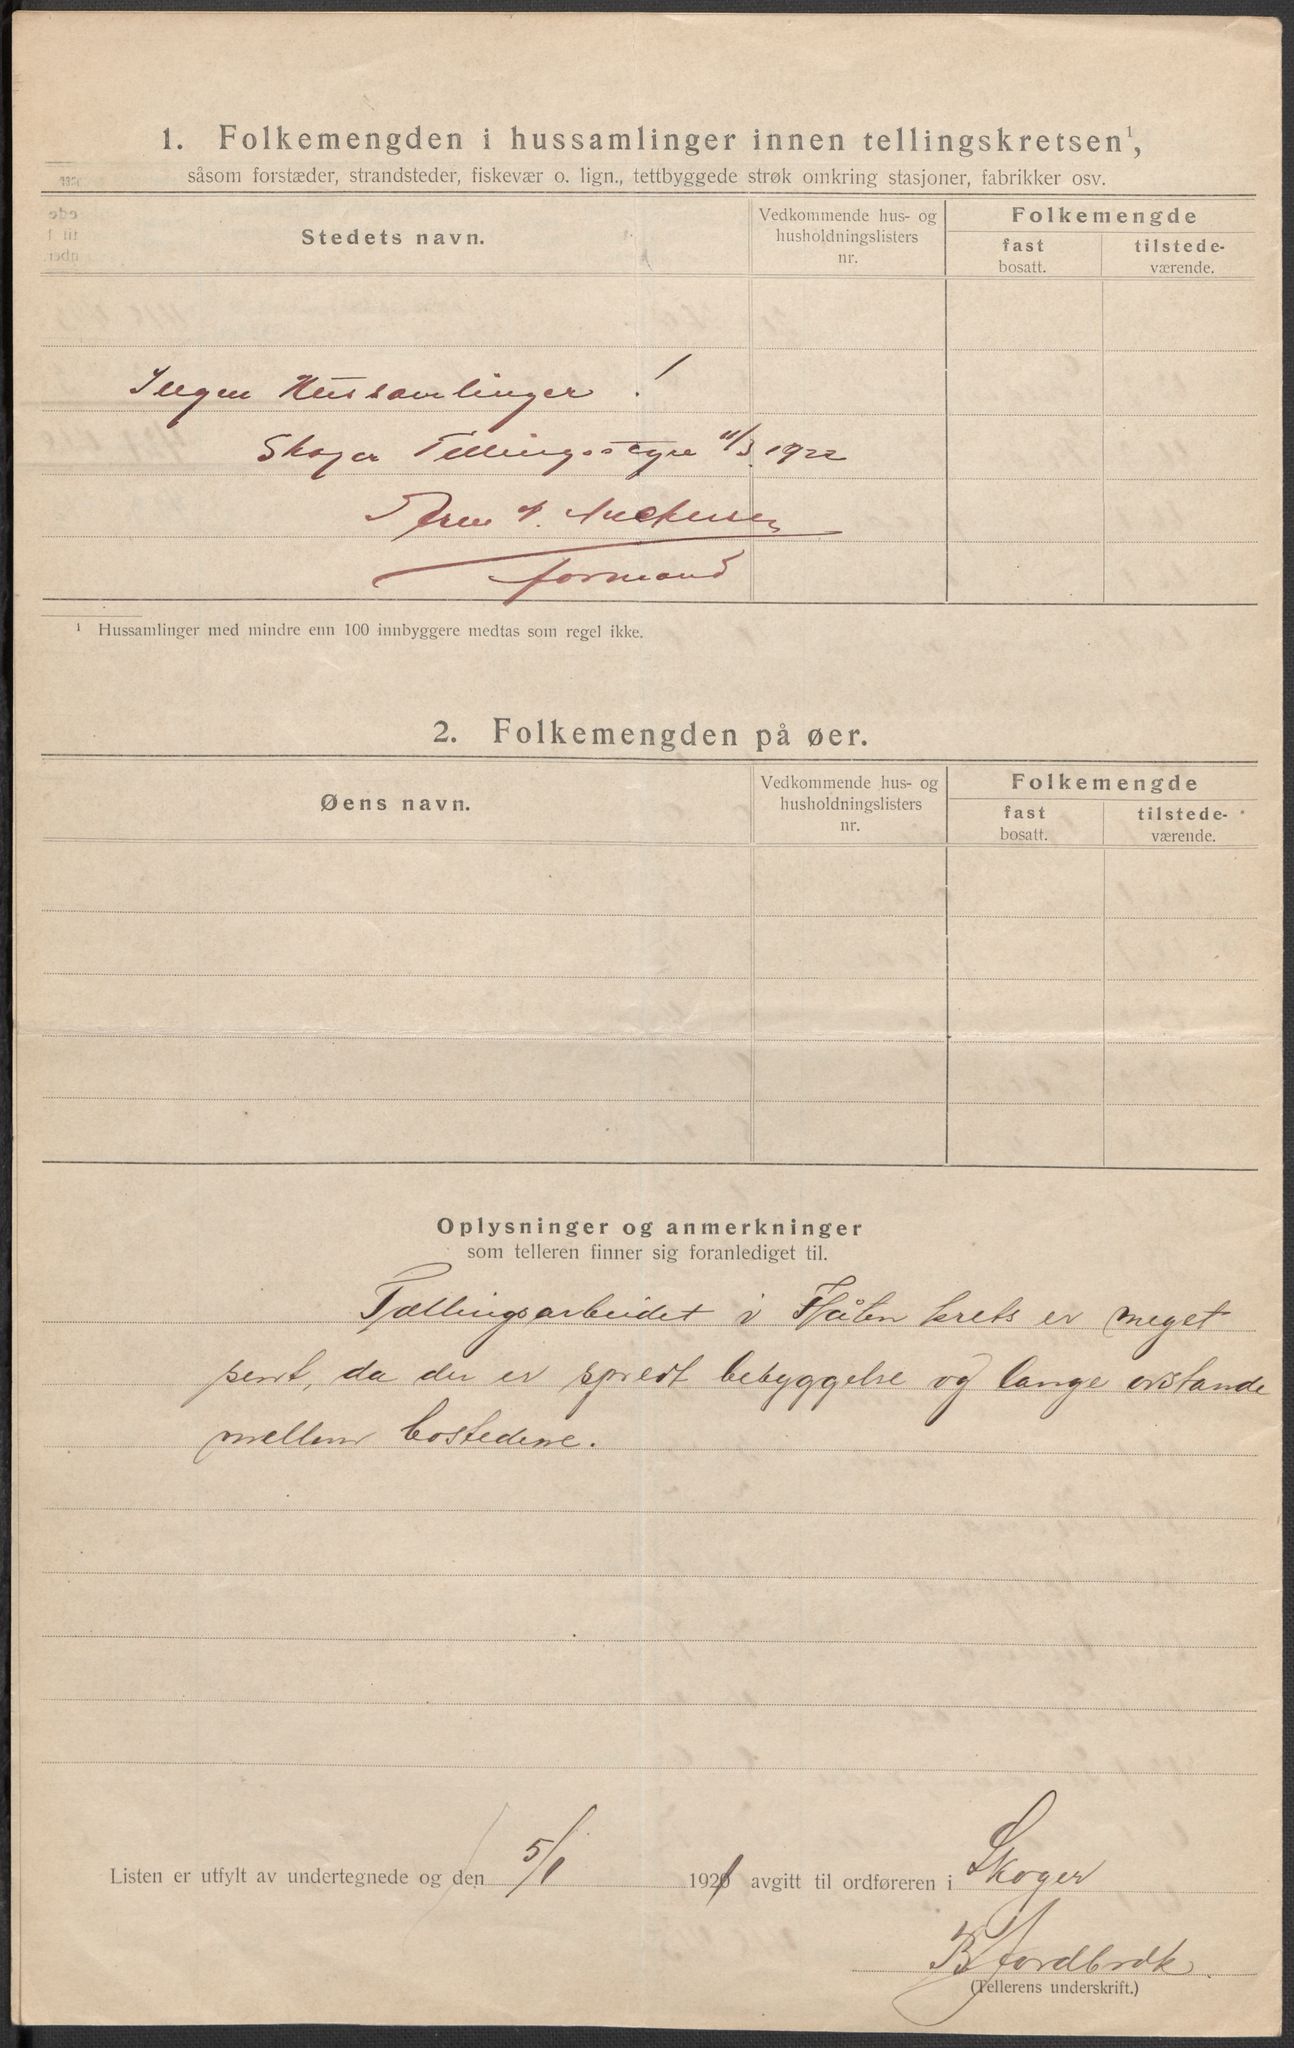 1. Folkemengden i hussamlinger innen tellingskretsen¹,
såsom forstæder, strandsteder, fiskevær o. lign., tettbyggede strøk omkring stasjoner, fabrikker osv.
Stedets navn.
Vedkommende hus- og
husholdningslisters
nr.
Folkemengde
fast
bosatt.
tilstede-
værende.
Ingen Hussamlinger!
Skoger Tellingsstyre 11/3 1922
formand
¹ Hussamlinger med mindre enn 100 innbyggere medtas som regel ikke.
2. Folkemengden på øer.
Øens navn.
Vedkommende hus- og
husholdningslisters
nr.
Folkemengde
fast
bosatt.
tilstede-
værende.
Oplysninger og anmerkninger
som telleren finner sig foranlediget til.
Tællingsarbeidet i krets er meget
sent, da der er spredt bebyggelse og lange avstande
mellem bostedene.
Listen er utfylt av undertegnede og den 5/1 1921 avgitt til ordføreren i Skoger
B Jordbræk
(Tellerens underskrift.)